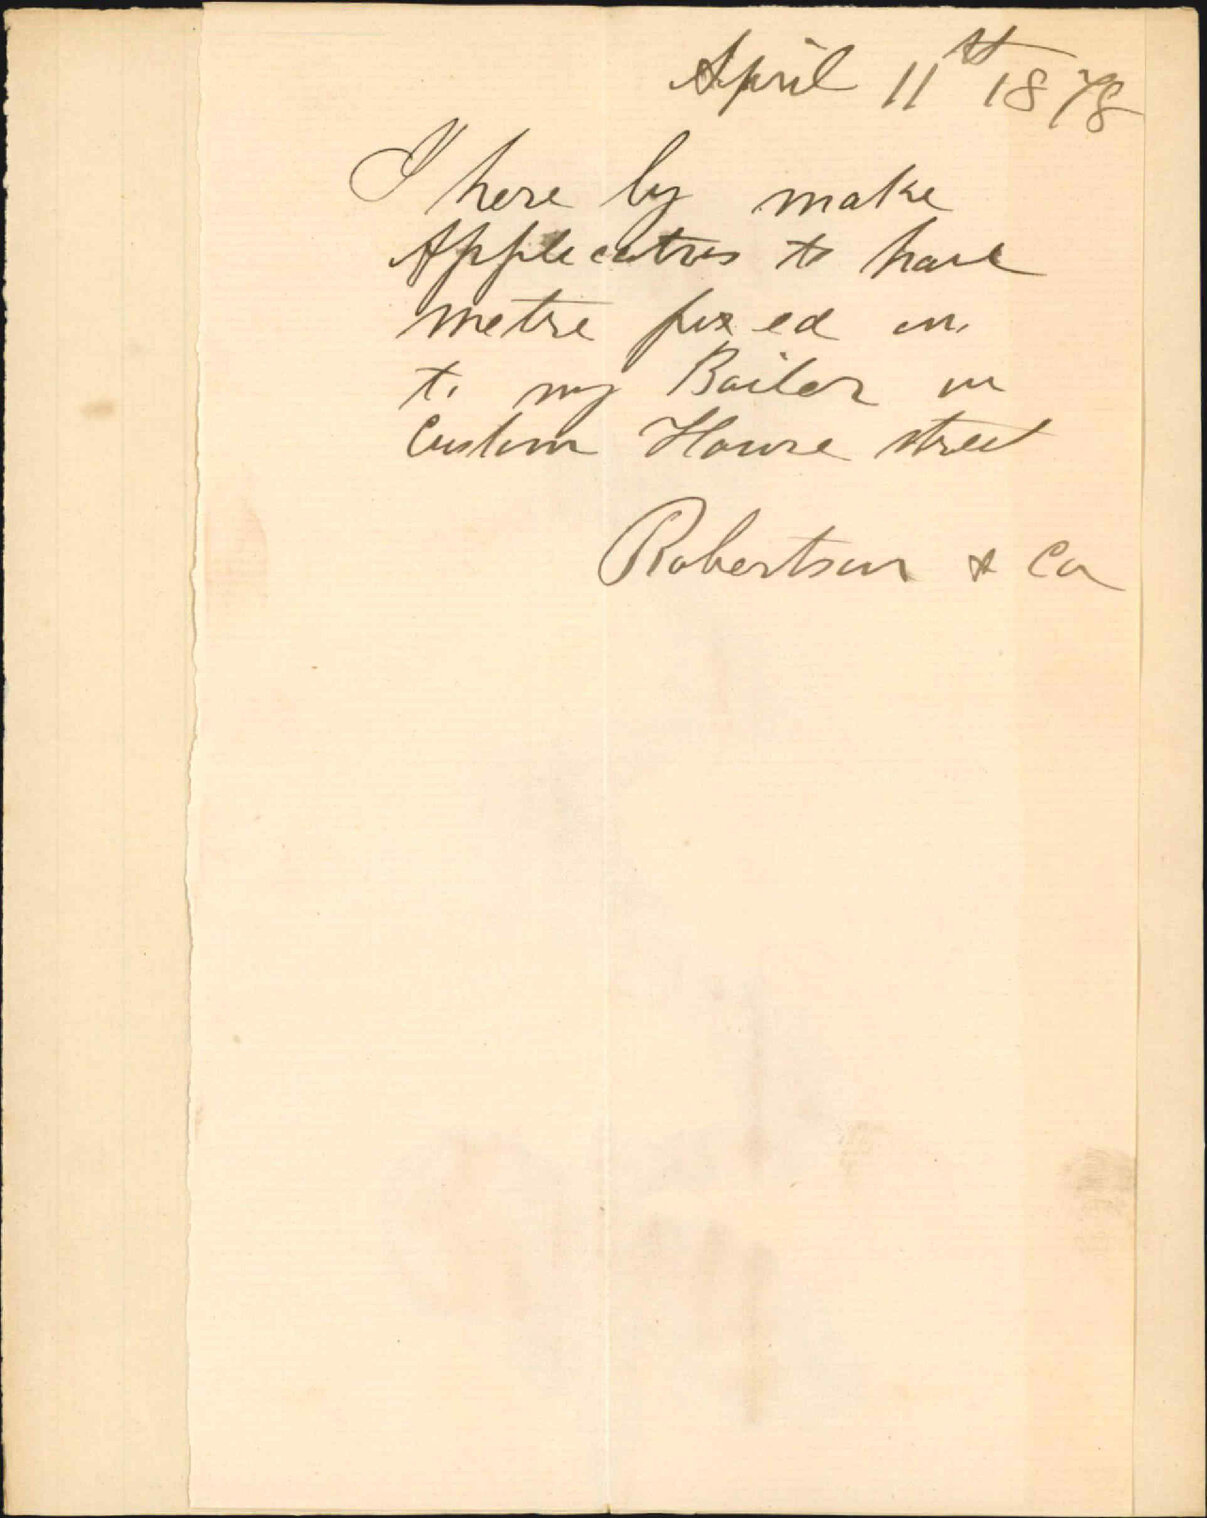 April 11th 1878
I here by make
Application to have
metre fixed on
to my Boiler in
Custom House street
Robertson & Co